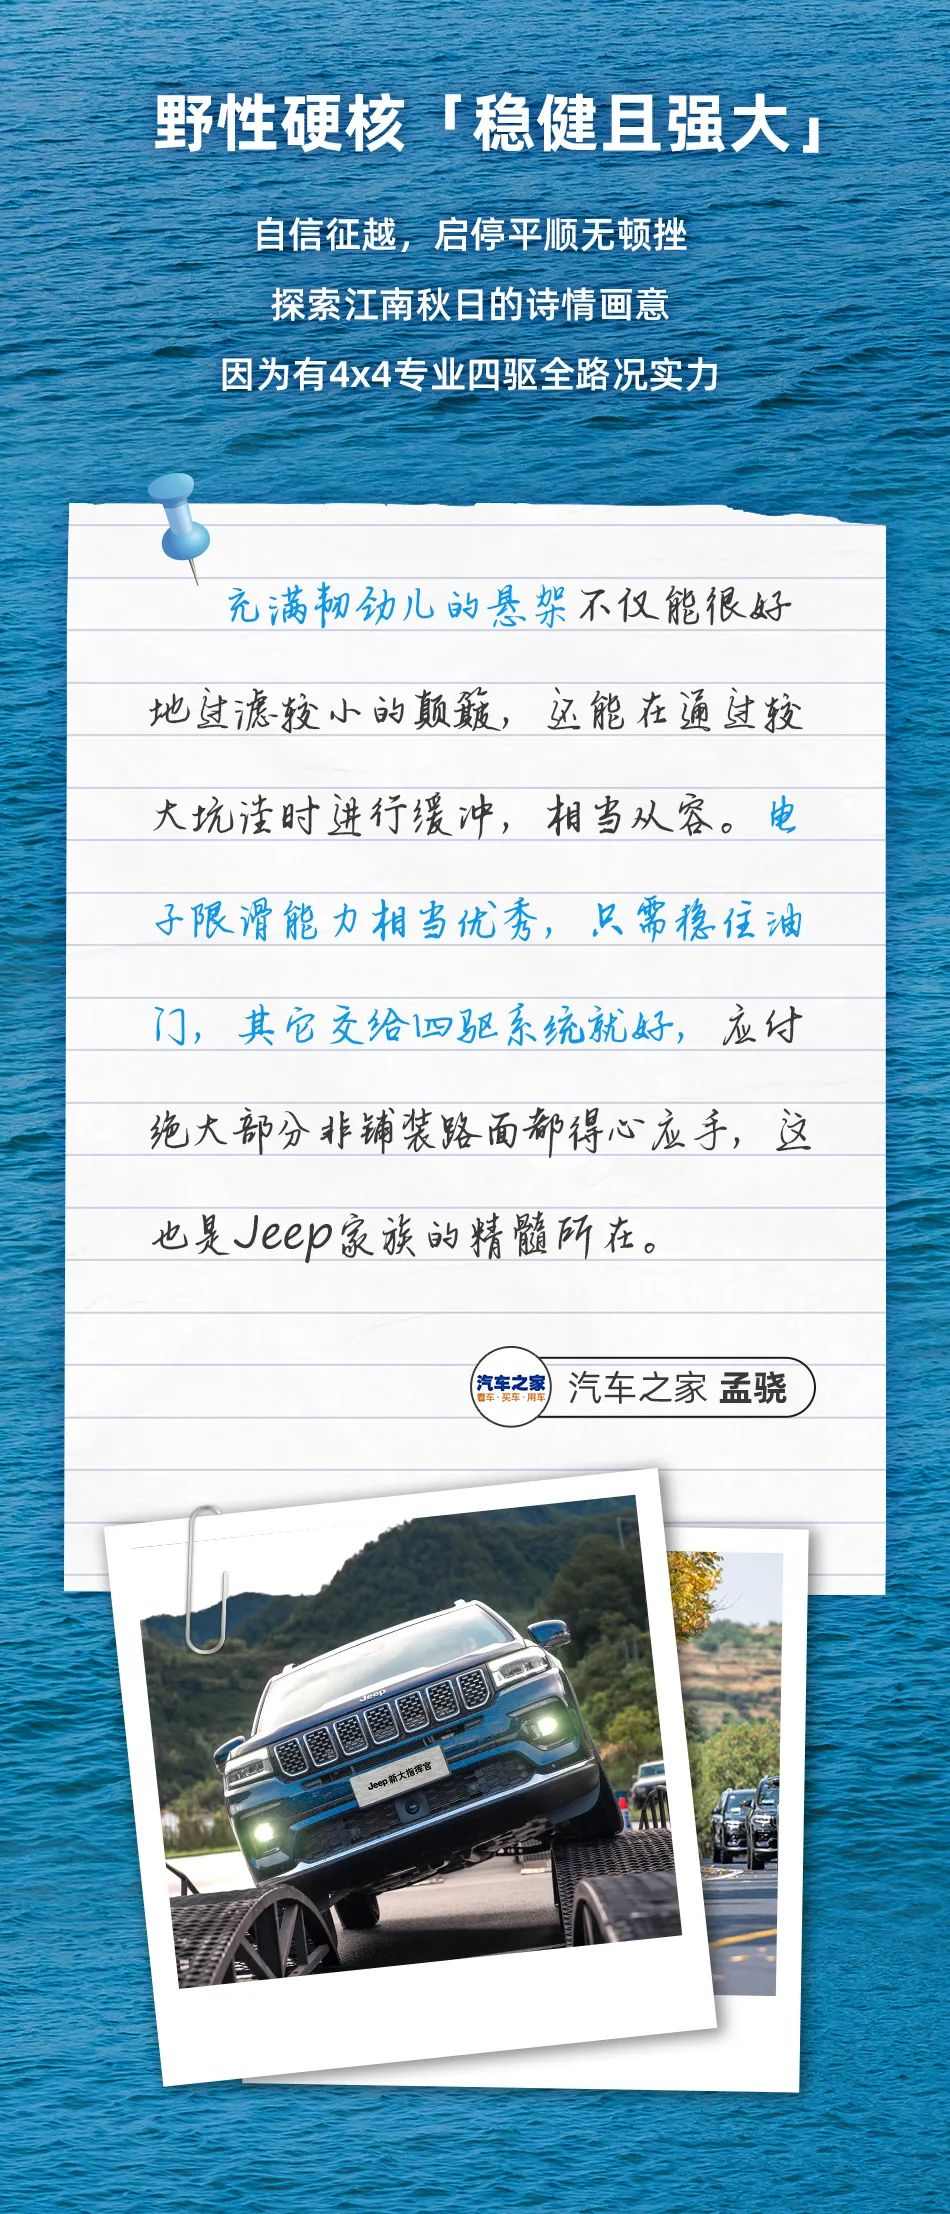 野性硬核「稳健且强大」
自信征越，启停平顺无顿挫
探索江南秋日的诗情画意
因为有4x4专业四驱全路况实力
充满韧劲儿的悬架不仅能很好
地过滤较小的颠簸，还能在通过较
大坑洼时进行缓冲，相当从容。电
子限滑能力相当优秀，只需稳住油
门，其它交给四驱系统就好，应付
绝大部分非铺装路面都得心应手，这
也是Jeep家族的精髓所在。
汽车之家
看车·买车·用车
汽车之家 孟骁
Jeep
Jeep新大指挥官